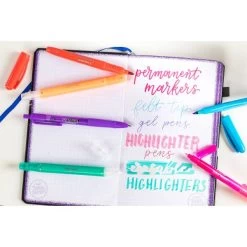 permanent
markers
felt tip
gel pens
HIGHLIGHTER
pens
HIGHLIGHTERS